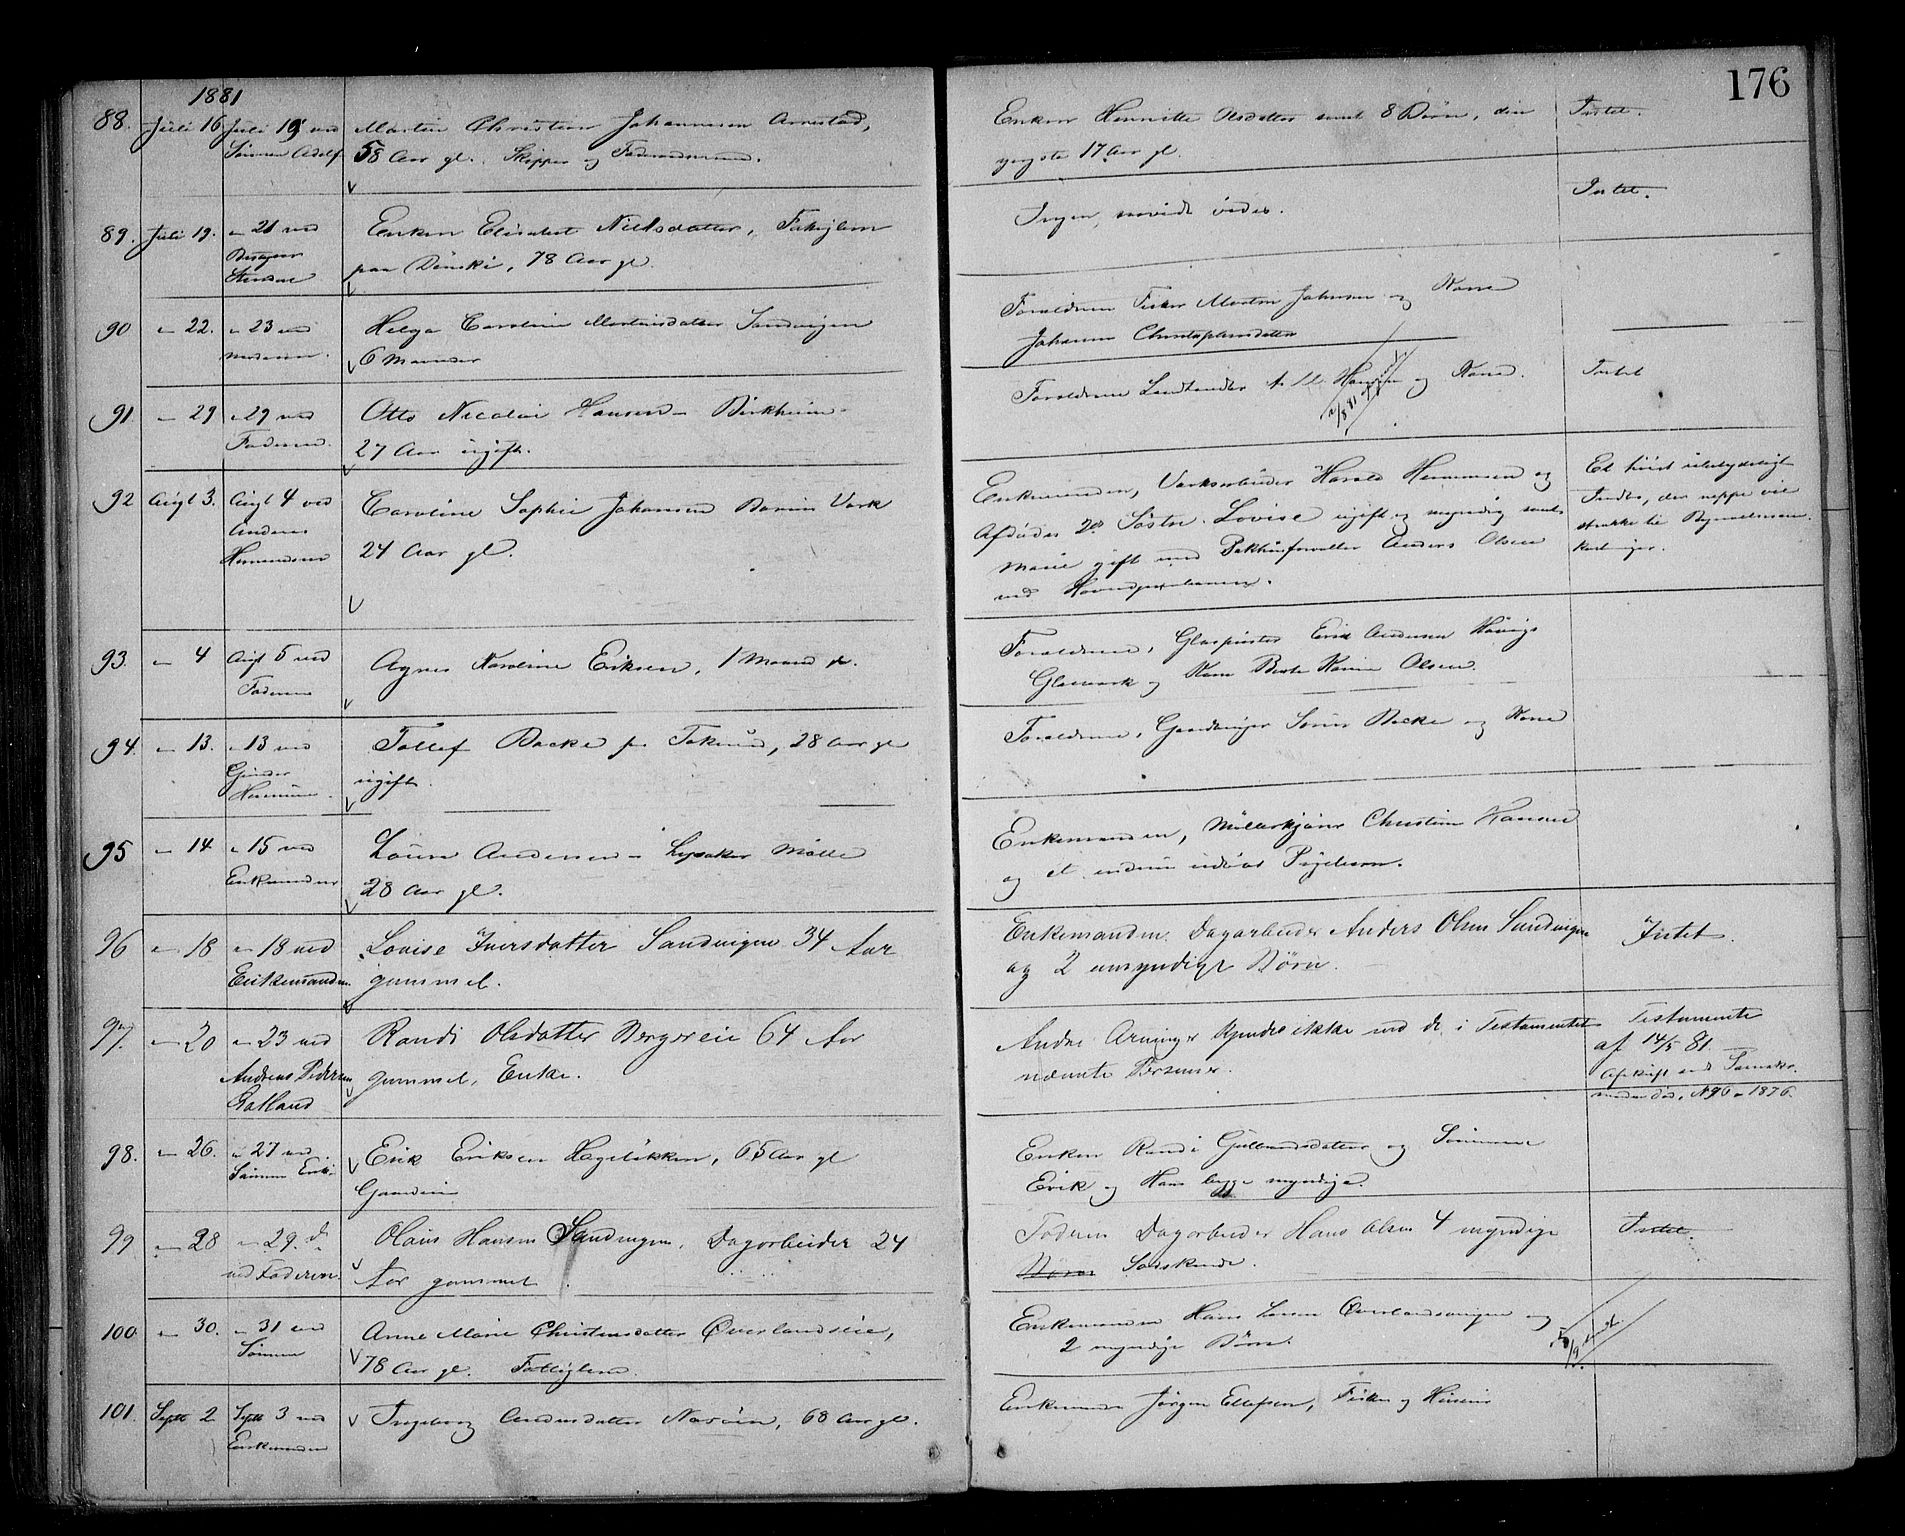 176
1881
88. Juli 16 Juli 19 ved Sönnen Adolf
Martin Christian Johannesen Arnestad,
58 Aar gl. Skipper og
Enken Henriette Olsdatter samt 8 Börn, den
yngste 17 Aar gl.
Intet.
89. Juli 19. " 21 ved
Enken Elisabet Nielsdatter, Fattiglem
paa Dönski, 78 Aar gl.
Ingen, saavidt vides.
Intet.
90 " 22. " 23 ved
Moderen.
Helga Caroline Martinsdatter Sandvigen
6 Maaneder
Forældrene Fisker Martin Johnsen og Kone
Johanne Christophersdatter
91. " 29 " 29 ved
Faderen.
Otto Nicolai Hansen
27 Aar ugift.
Forældrene Landhandler Hansen og Kone.
Intet
92 Augt 3. Augt 4 ved
Anders
Hermansen
Caroline Sophie Johansen Bærums Værk
24 Aar gl.
Enkemanden, Værksarbeider Harald Hermansen og
Afdödes 2de Söstre Lovise ugift og myndig samt
Marie gift med Pakhusforvalter Anders Olsen
ved
Et höist ubetydeligt
Indbo, der neppe vil
strække til Begravelsesom-
kostninger.
93. " 4 Augt 5 ved
Faderen
Agnes Karoline Eriksen, 1 Maaned
Forældrene, Glaspuster Erik Andersen Hövigs
Glasværk og Kone Berte Karine Olsen.
94. " 13. " 13 ved
Tollef Bakke fr. Toknud, 28 Aar gl
ugift.
Forældrene, Gaardbruger Sören Bakke og Kone
95 " 14 " 15 ved
Enkemanden
Andersen Lysaker Mölle
28 Aar gl.
Enkemanden, Möllerkjörer Christian Hansen
og et endnu udöbt Pigebarn.
96 " 18 " 18 ved
Enkemanden
Lovise Iversdatter Sandvigen 34 Aar
gammel.
Enkemanden Dagarbeider Anders Olsen Sandvigen
og 2 umyndige Börn.
Intet.
97. " 20 " 23 ved
Andreas Pedersen
Randi Olsdatter Bergereie 64 Aar
gammel, Enke.
Andre Arvinger kjendes ikke end de i Testamentet
nævnte Personer.
Testamente
af 14/5 81
98. " 26. " 27 ved
Sönnen Erik
Erik Eriksen Hagelökken, 65 Aar gl
Enken Randi Gulbrandsdatter og Sönnerne
Erik og Hans begge myndige.
99 " 28 " 29. d
ved Faderen.
Olaus Hansen Sandvigen, Dagarbeider 24
Aar gammel
Faderen Dagarbeider Hans Olsen 4 myndige
Börn Södskende.
Intet.
100. " 30. " 31 ved
Sönnen
Anne Marie Christensdatter Överlandseie,
78 Aar gl. Fattiglem.
Enkemanden Hans Larsen og
2 myndige Börn.
101. Septb 2 Septb 3 ved
Enkemanden
Ingeborg Andersdatter 68 Aar gl.
Enkemanden Jörgen Ellefsen, Fisker og